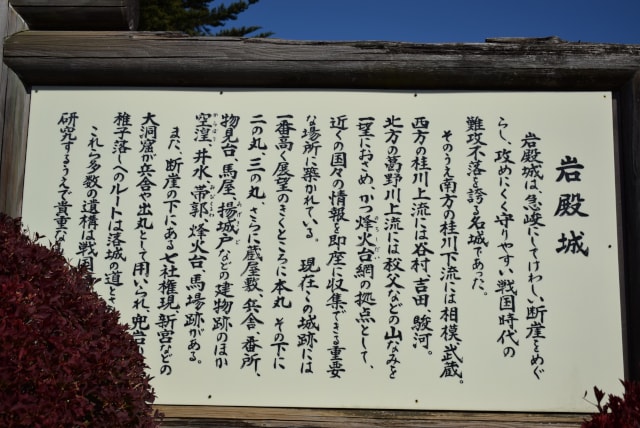 岩殿城
岩殿城は、急峻にしてけわしい断崖をめぐ
らし、攻めにくく守りやすい戦国時代の
難攻不落を誇る名城であった。
そのうえ南方の桂川下流には相模武蔵。
西方の桂川上流には谷村、吉田、駿河。
北方の葛野川上流には秩父などの山なみを
一望におさめ、かつ烽火台網の拠点として、
近くの国々の情報を即座に収集できる重要
な場所に築かれている。 現在この城跡には
一番高く展望のきくところに本丸、その下に
二の丸、三の丸、さらに蔵屋敷、兵舎、番所、
物見台、馬屋、揚城戸などの建物跡のほか
空湟、井水、帯郭、烽火台、馬場跡がある。
また、断崖の下にある七社権現、新宮などの
大洞窟が兵舎や出丸として用いられ、兜岩
稚子落しへのルートは落城の道と
これら多数の遺構は戦国
研究するうえで貴重な